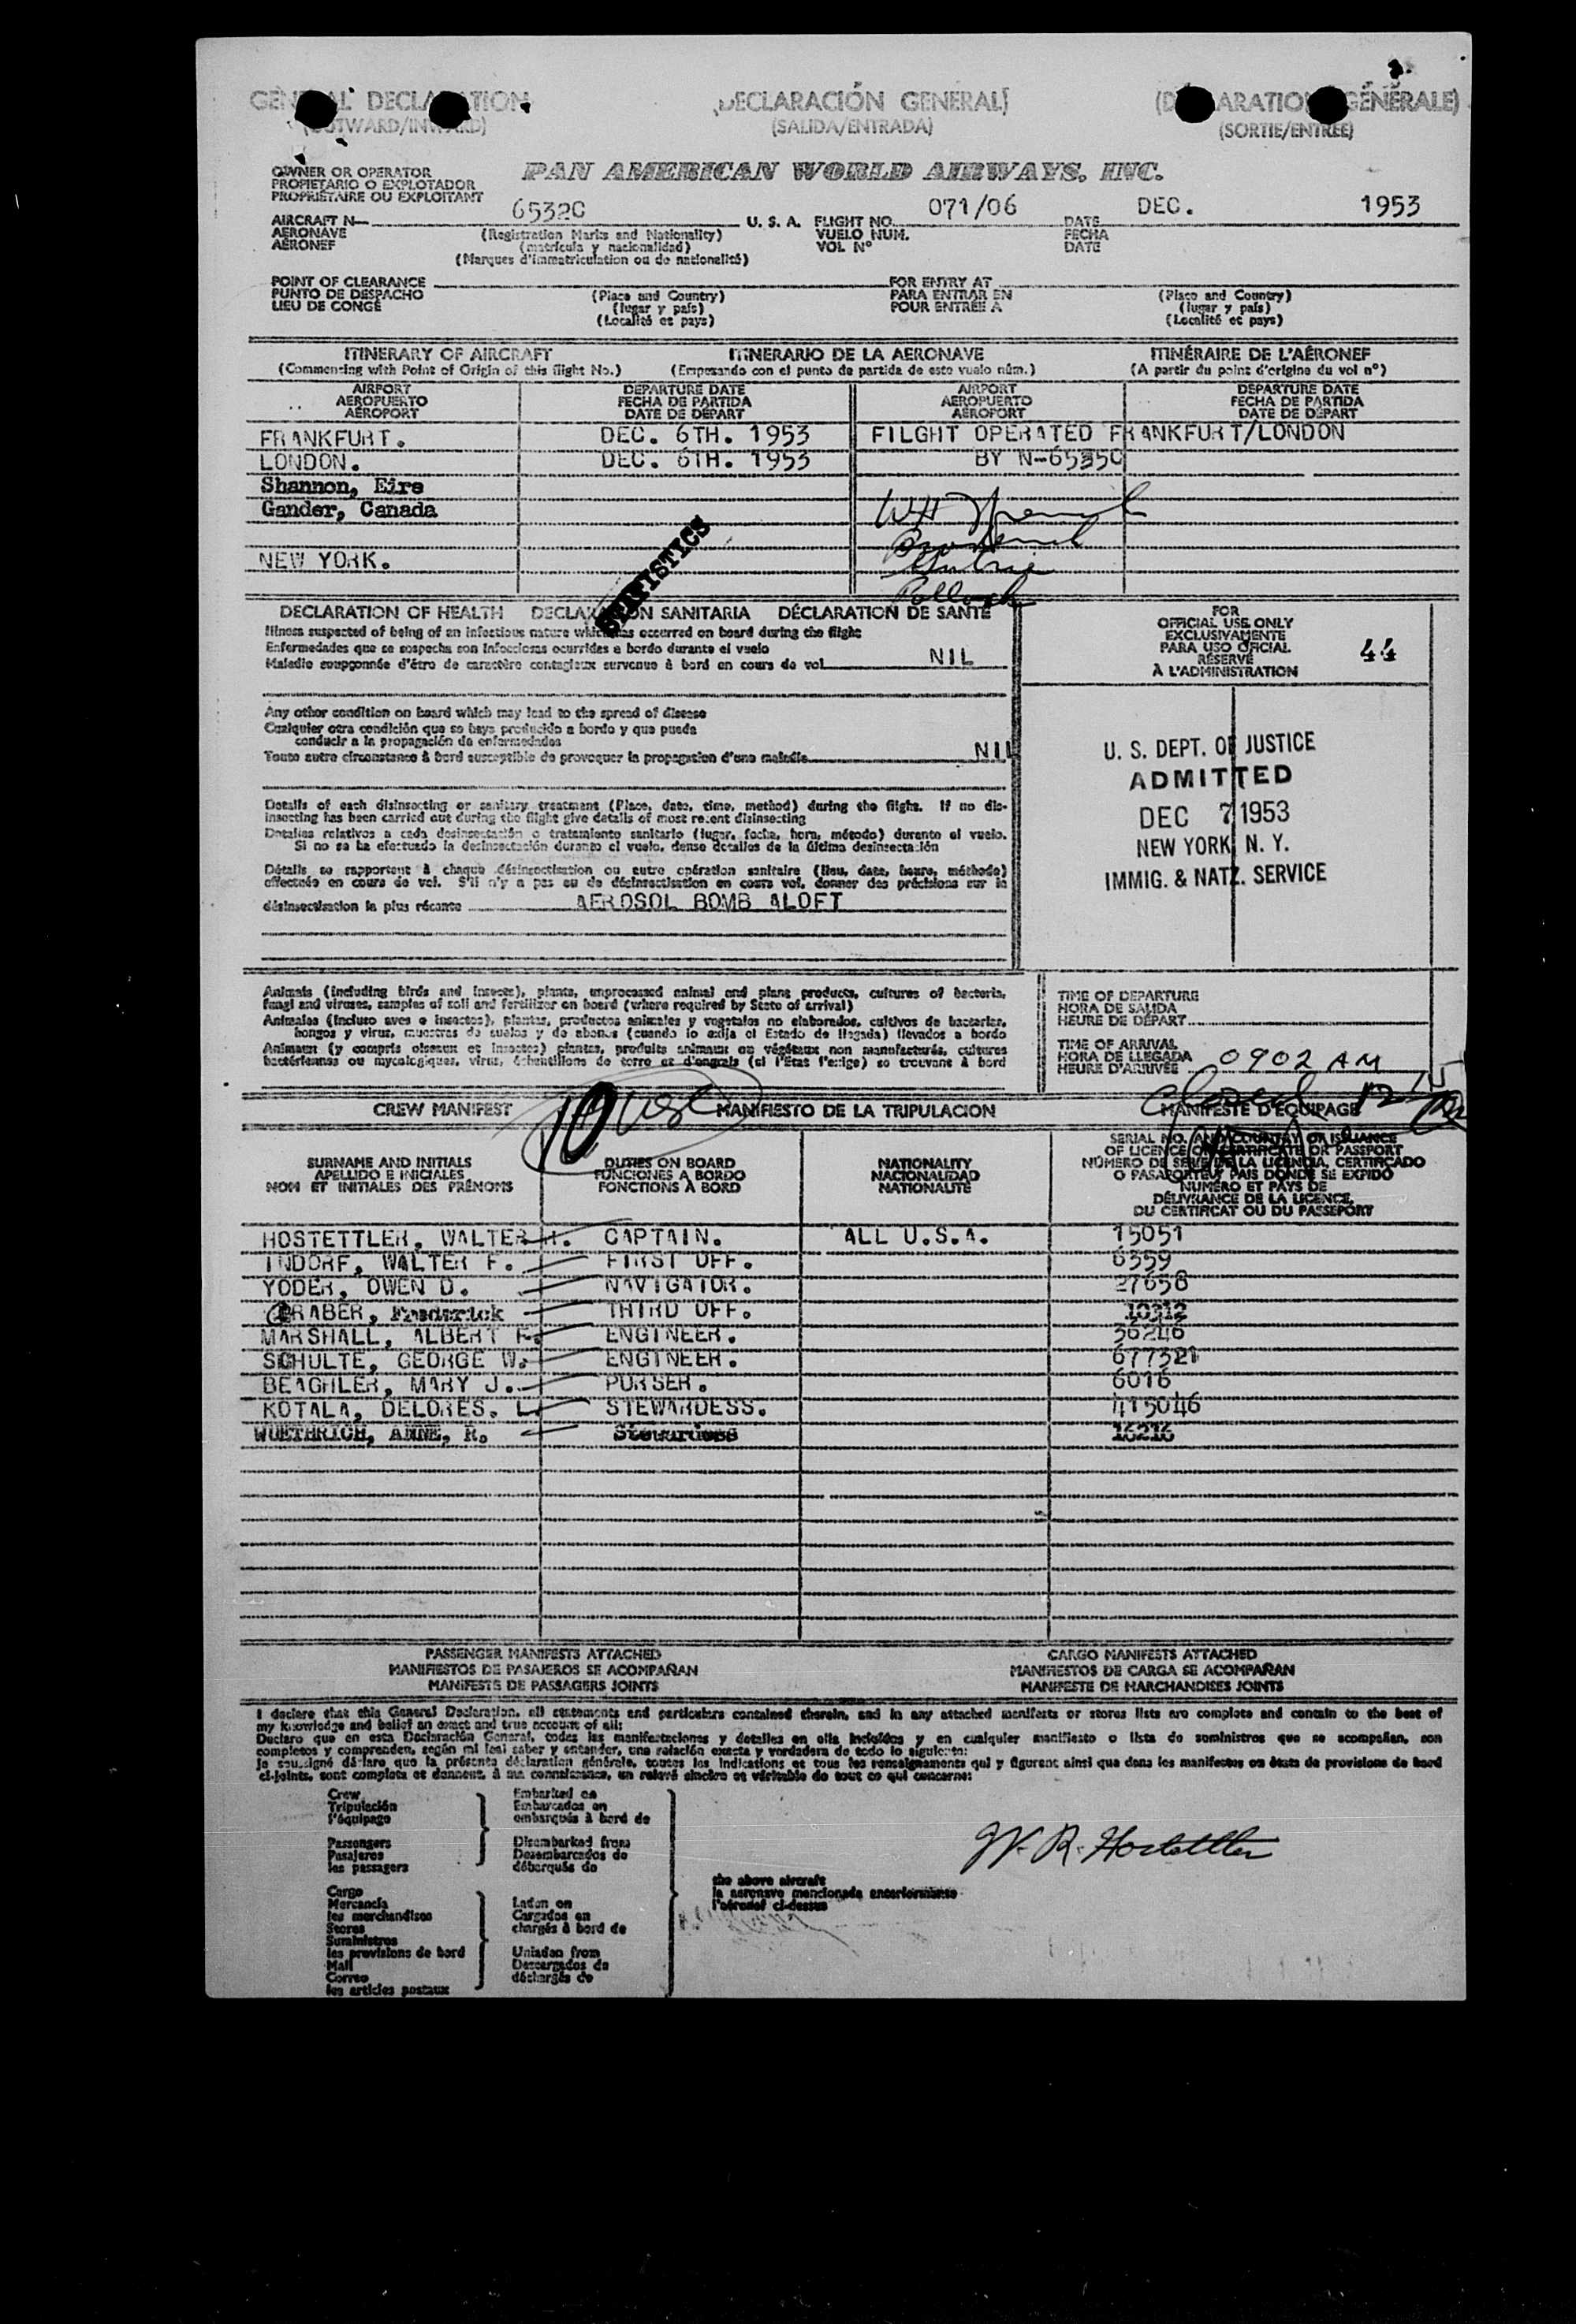 GENERAL DECLARATION (DECLARACIÓN GENERAL) (DÉCLARATION GÉNÉRALE)
(OUTWARD/INWARD) (SALIDA/ENTRADA) (SORTIE/ENTRÉE)
OWNER OR OPERATOR PAN AMERICAN WORLD AIRWAYS, INC.
PROPIETARIO O EXPLOTADOR
PROPRIÉTAIRE OU EXPLOITANT
AIRCRAFT N— 6532C U. S. A. FLIGHT NO. 071/06 DATE DEC. 1953
AERONAVE (Registration Marks and Nationality) VUELO NUM. FECHA
AÉRONEF (matrícula y nacionalidad) VOL Nº DATE
(Marques d'immatriculation ou de nationalité)
POINT OF CLEARANCE FOR ENTRY AT
PUNTO DE DESPACHO (Place and Country) PARA ENTRAR EN (Place and Country)
LIEU DE CONGÉ (lugar y país) POUR ENTRÉE À (lugar y país)
(Localité et pays) (Localité et pays)
ITINERARY OF AIRCRAFT ITINERARIO DE LA AERONAVE ITINÉRAIRE DE L'AÉRONEF
(Commencing with Point of Origin of this flight No.) (Empezando con el punto de partida de este vuelo núm.) (A partir du point d'origine du vol nº)
AIRPORT DEPARTURE DATE AIRPORT DEPARTURE DATE
AEROPUERTO FECHA DE PARTIDA AEROPUERTO FECHA DE PARTIDA
AÉROPORT DATE DE DÉPART AÉROPORT DATE DE DÉPART
FRANKFURT. DEC. 6TH. 1953 FILGHT OPERATED FRANKFURT/LONDON
LONDON. DEC. 6TH. 1953 BY N-6535C
Shannon, Eire
Gander, Canada
NEW YORK.
STATISTICS
DECLARATION OF HEALTH DECLARACIÓN SANITARIA DÉCLARATION DE SANTÉ
Illness suspected of being of an infectious nature which has occurred on board during the flight
Enfermedades que se sospecha son infecciosas ocurridas a bordo durante el vuelo
Maladie soupçonnée d'être de caractère contagieux survenue à bord en cours de vol NIL
FOR
OFFICIAL USE ONLY
EXCLUSIVAMENTE
PARA USO OFICIAL
RÉSERVÉ
À L'ADMINISTRATION
44
Any other condition on board which may lead to the spread of disease
Cualquier otra condición que se haya producido a bordo y que pueda
conducir a la propagación de enfermedades
Toute autre circonstance à bord susceptible de provoquer la propagation d'une maladie NIL
U. S. DEPT. OF JUSTICE
ADMITTED
DEC 7 1953
NEW YORK, N. Y.
IMMIG. & NATZ. SERVICE
Details of each disinsecting or sanitary treatment (Place, date, time, method) during the flight. If no dis-
insecting has been carried out during the flight give details of most recent disinsecting
Detalles relativos a cada desinsectación o tratamiento sanitario (lugar, fecha, hora, método) durante el vuelo.
Si no se ha efectuado la desinsectación durante el vuelo, dense detalles de la última desinsectación
Détails se rapportant à chaque désinsectisation ou autre opération sanitaire (lieu, date, heure, méthode)
effectuée en cours de vol. S'il n'y a pas eu de désinsectisation en cours vol, donner des précisions sur la
désinsectisation la plus récente AEROSOL BOMB ALOFT
Animals (including birds and insects), plants, unprocessed animal and plant products, cultures of bacteria,
fungi and viruses, samples of soil and fertilizer on board (where required by State of arrival)
Animales (incluso aves e insectos), plantas, productos animales y vegetales no elaborados, cultivos de bacterias,
hongos y virus, muestras de suelos y de abonos (cuando lo exija el Estado de llegada) llevados a bordo
Animaux (y compris oiseaux et insectes) plantes, produits animaux ou végétaux non manufacturés, cultures
bactériennes ou mycologiques, virus, échantillons de terre et d'engrais (si l'État l'exige) se trouvant à bord
TIME OF DEPARTURE
HORA DE SALIDA
HEURE DE DÉPART
TIME OF ARRIVAL
HORA DE LLEGADA 0902 AM
HEURE D'ARRIVÉE
CREW MANIFEST 10 MANIFIESTO DE LA TRIPULACION MANIFESTE D'ÉQUIPAGE
SURNAME AND INITIALS DUTIES ON BOARD NATIONALITY SERIAL NO. AND COUNTRY OF ISSUANCE
APELLIDO E INICIALES FUNCIONES A BORDO NACIONALIDAD OF LICENCE OR CERTIFICATE OR PASSPORT
NOM ET INITIALES DES PRÉNOMS FONCTIONS À BORD NATIONALITÉ NÚMERO DE SERIE DE LA LICENCIA, CERTIFICADO
O PASAPORTE Y PAIS DONDE SE EXPIDÓ
NUMÉRO ET PAYS DE
DÉLIVRANCE DE LA LICENCE,
DU CERTIFICAT OU DU PASSEPORT
HOSTETTLER, WALTER R. CAPTAIN. ALL U.S.A. 15051
INDORF, WALTER F. FIRST OFF. 6359
YODER, OWEN D. NAVIGATOR. 27658
GRABER, Frederick THIRD OFF. 10312
MARSHALL, ALBERT F. ENGINEER. 36246
SCHULTE, GEORGE W. ENGINEER. 677321
BEAGHLER, MARY J. PURSER. 6016
KOTALA, DELORES. L. STEWARDESS. 415046
WUETHRICH, ANNE, R. Stewardess 16216
PASSENGER MANIFESTS ATTACHED CARGO MANIFESTS ATTACHED
MANIFIESTOS DE PASAJEROS SE ACOMPAÑAN MANIFIESTOS DE CARGA SE ACOMPAÑAN
MANIFESTE DE PASSAGERS JOINTS MANIFESTE DE MARCHANDISES JOINTS
I declare that this General Declaration, all statements and particulars contained therein, and in any attached manifests or stores lists are complete and contain to the best of
my knowledge and belief an exact and true account of all:
Declaro que en esta Declaración General, todas las manifestaciones y detalles en ella incluídos y en cualquier manifiesto o lista de suministros que se acompañan, son
completos y comprenden, según mi leal saber y entender, una relación exacta y verdadera de todo lo siguiente:
Je soussigné déclare que la présente déclaration générale, toutes les indications et tous les renseignements qui y figurent ainsi que dans les manifestes ou états de provisions de bord
ci-joints, sont complets et donnent, à ma connaissance, un relevé sincère et véritable de tout ce qui concerne:
Crew Embarked on
Tripulación Embarcados en
l'équipage embarqués à bord de
Passengers Disembarked from
Pasajeros Desembarcados de
les passagers débarqués de
W. R. Hostettler
the above aircraft
la aeronave mencionada anteriormente
l'aéronef ci-dessus
Cargo
Mercancía Laden on
les marchandises Cargados en
Stores chargés à bord de
Suministros
les provisions de bord Unladen from
Mail Descargados de
Correo déchargés de
les articles postaux